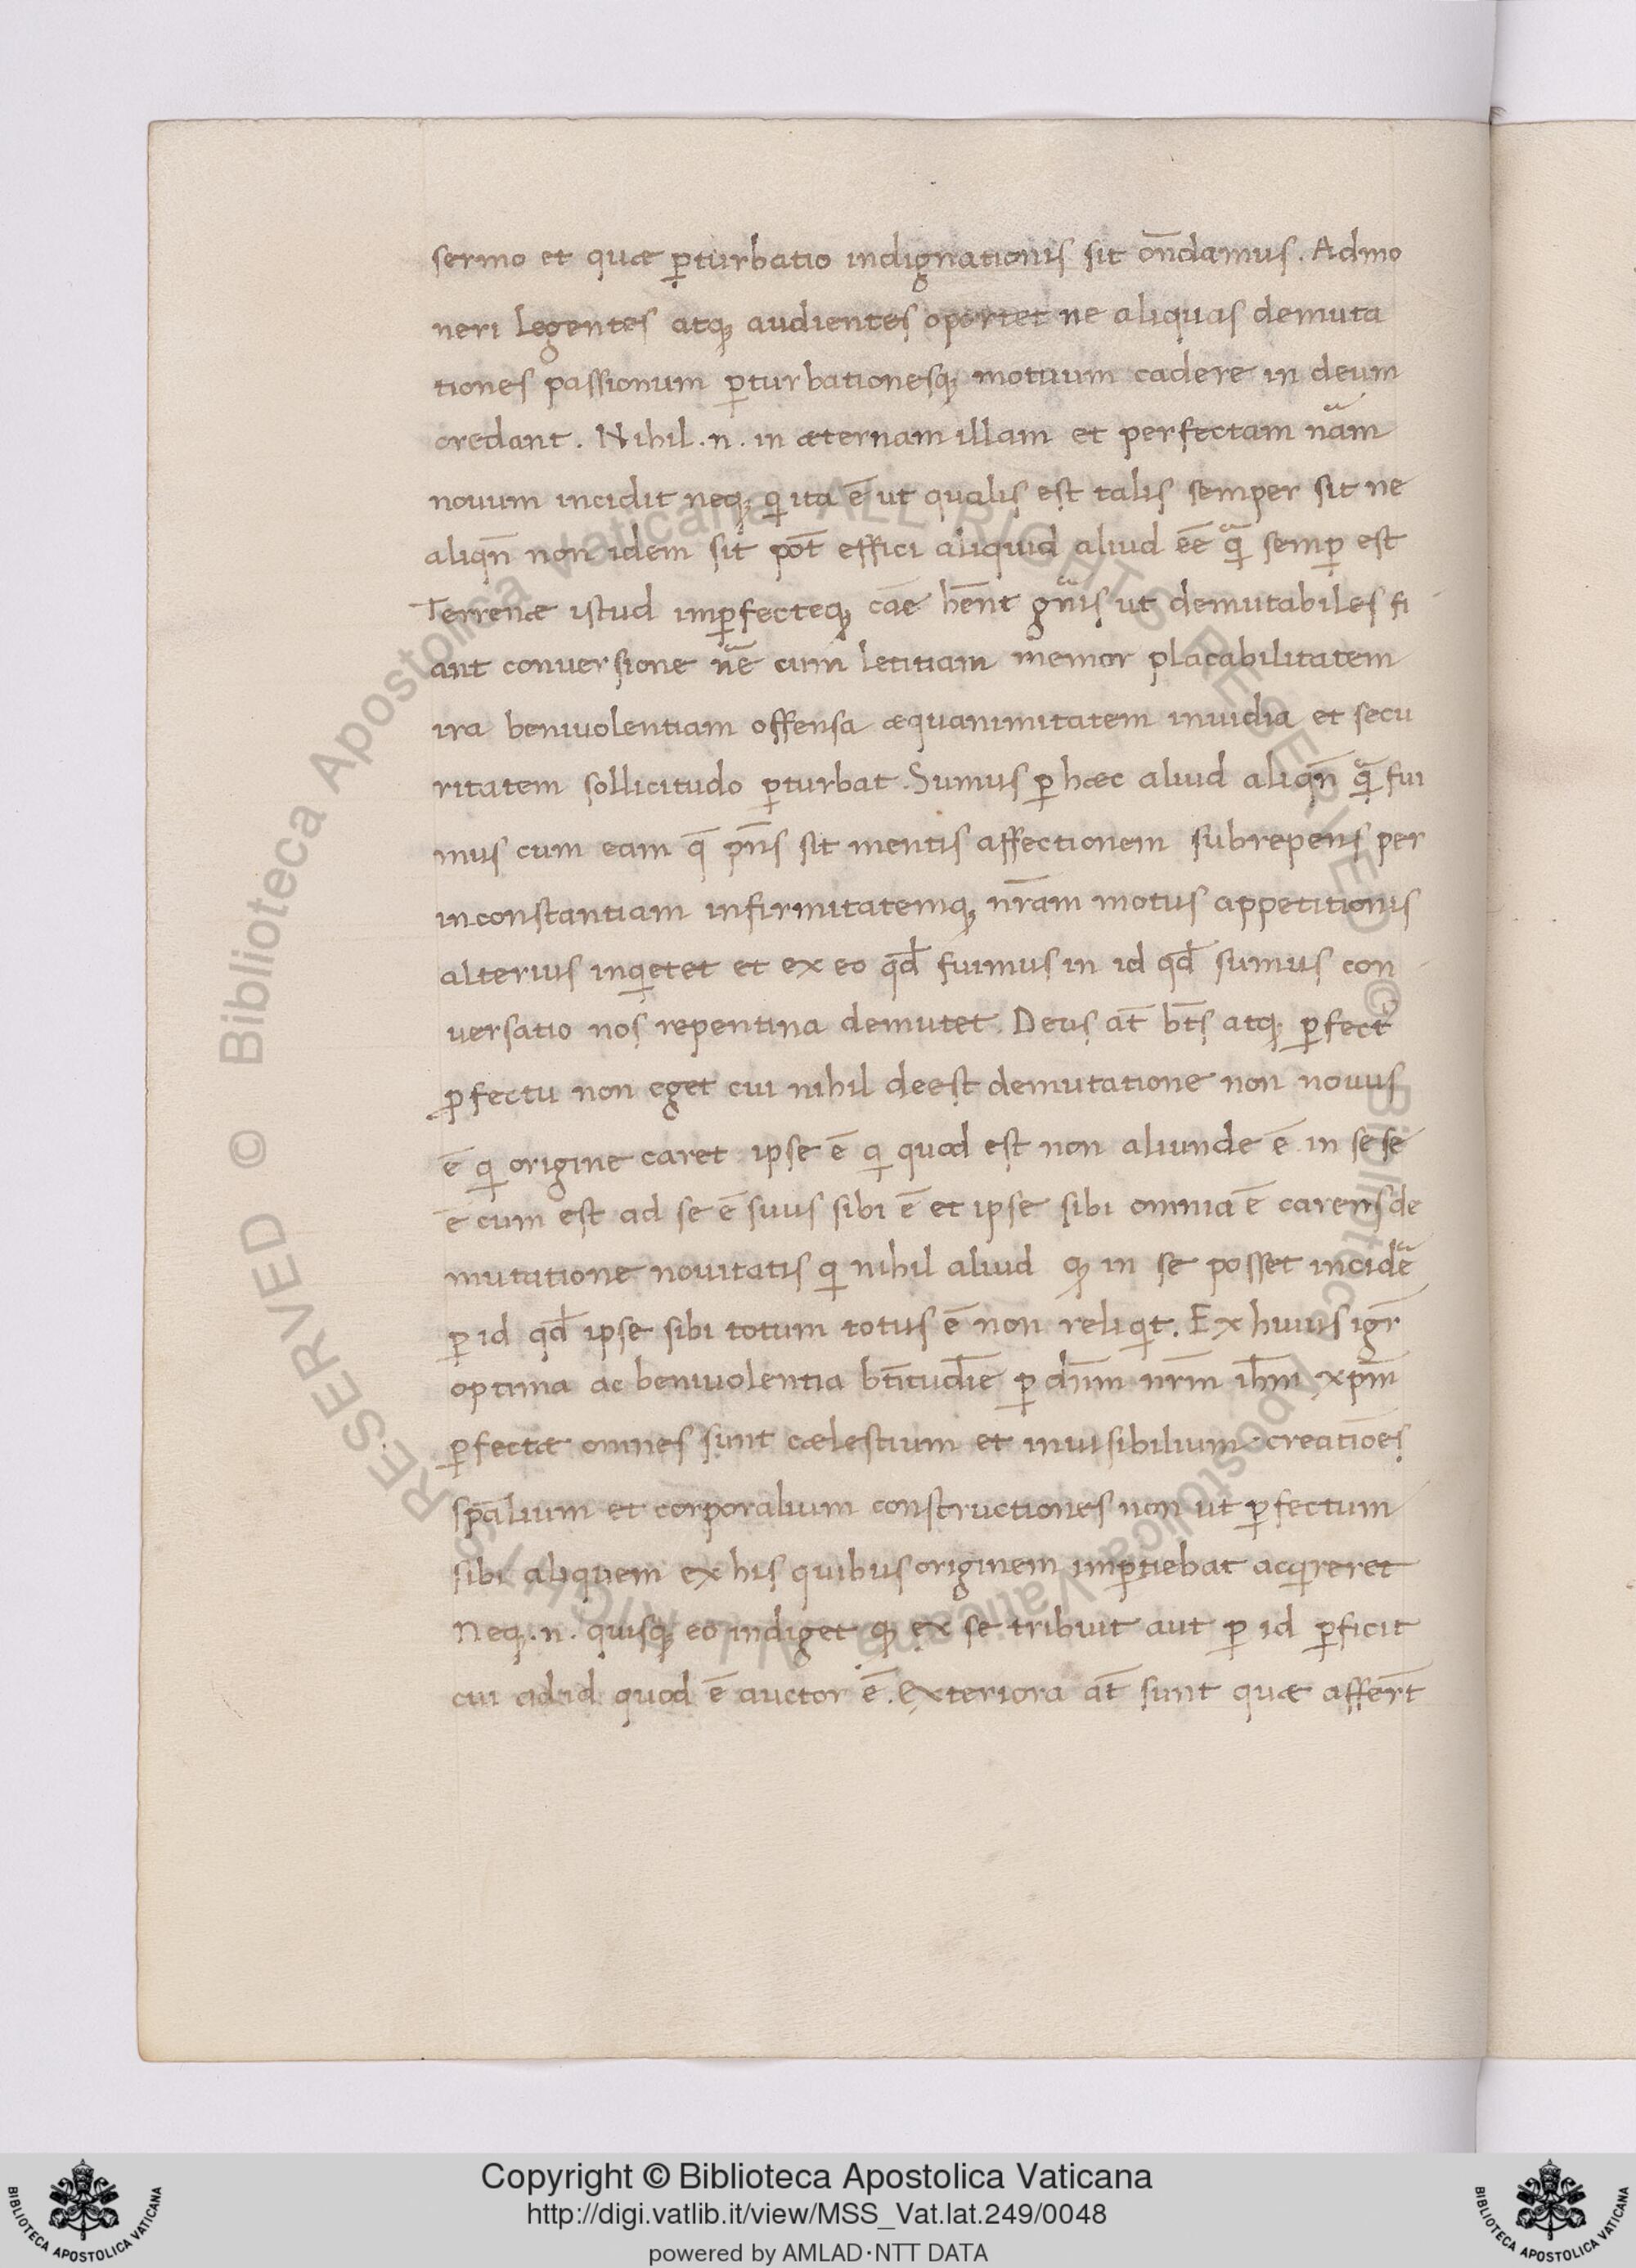 sermo et quæ ꝑturbatio indignationis sit on̄damus. Admo
neri legentes atqꝫ audientes oportet ne aliquas demuta
tiones passionum ꝑturbationesqꝫ motuum cadere in deum
credant. Nihil .n. in æternam illam et perfectam nãm
nouum incidit neqꝫ qi ita ē ut qualis est talis semper sit ne
aliqn̄ non idem sit pōt effici aliquid aliud eē̄ qi̇ semꝑ est
Terrenæ istud imꝑfecteqꝫ cāe hēnt gn̄is ut demutabiles fi
ant conuersione nẽ cum letitiam memor placabilitatem
ira beniuolentiam offensa æquanimitatem inuidia et secu
ritatem sollicitudo ꝑturbat. Sumus ꝑ hæc aliud aliqn̄ q̃ fui
mus cum eam q̄ pn̄s sit mentis affectionem subrepens per
inconstantiam infirmitatemqꝫ nr̄am motus appetitionis
alterius inqietet et ex eo qd̄ fuimus in id qd̄ sumus con
versatio nos repentina demutet. Deus at̄ bt̄s atqꝫ ꝑfectꝰ
ꝓfectu non eget cui nihil deest demutatione non nouus
ē qi origine caret ipse ē qi quod est non aliunde ē in sese
ē cum est ad se ē suus sibi ē et ipse sibi omnia ē carens de
mutatione nouitatis qi nihil aliud qꝫ in se posset incidẽ
ꝑ id qd̄ ipse sibi totum totus ē non reliqit. Ex huius igr̄
optima ac beniuolentia bt̄itudīe ꝑ dn̄m nr̄m ih̄m xp̄m
ꝑfectæ omnes sunt cælestium et inuisibilium creatiōes
spālium et corporalium constructiones non ut ꝑfectum
sibi aliquem ex his quibus originem imꝑtiebat acqireret
Neqꝫ .n. quisqꝫ eo indiget qꝫ ex se tribuit aut ꝑ id ꝑficit
cui ad id quod ē auctor ē. Exteriora at̄ sunt quæ affer̄t
Copyright © Biblioteca Apostolica Vaticana
http://digi.vatlib.it/view/MSS_Vat.lat.249/0048
powered by AMLAD·NTT DATA
BIBLIOTECA APOSTOLICA VATICANA
BIBLIOTECA APOSTOLICA VATICANA